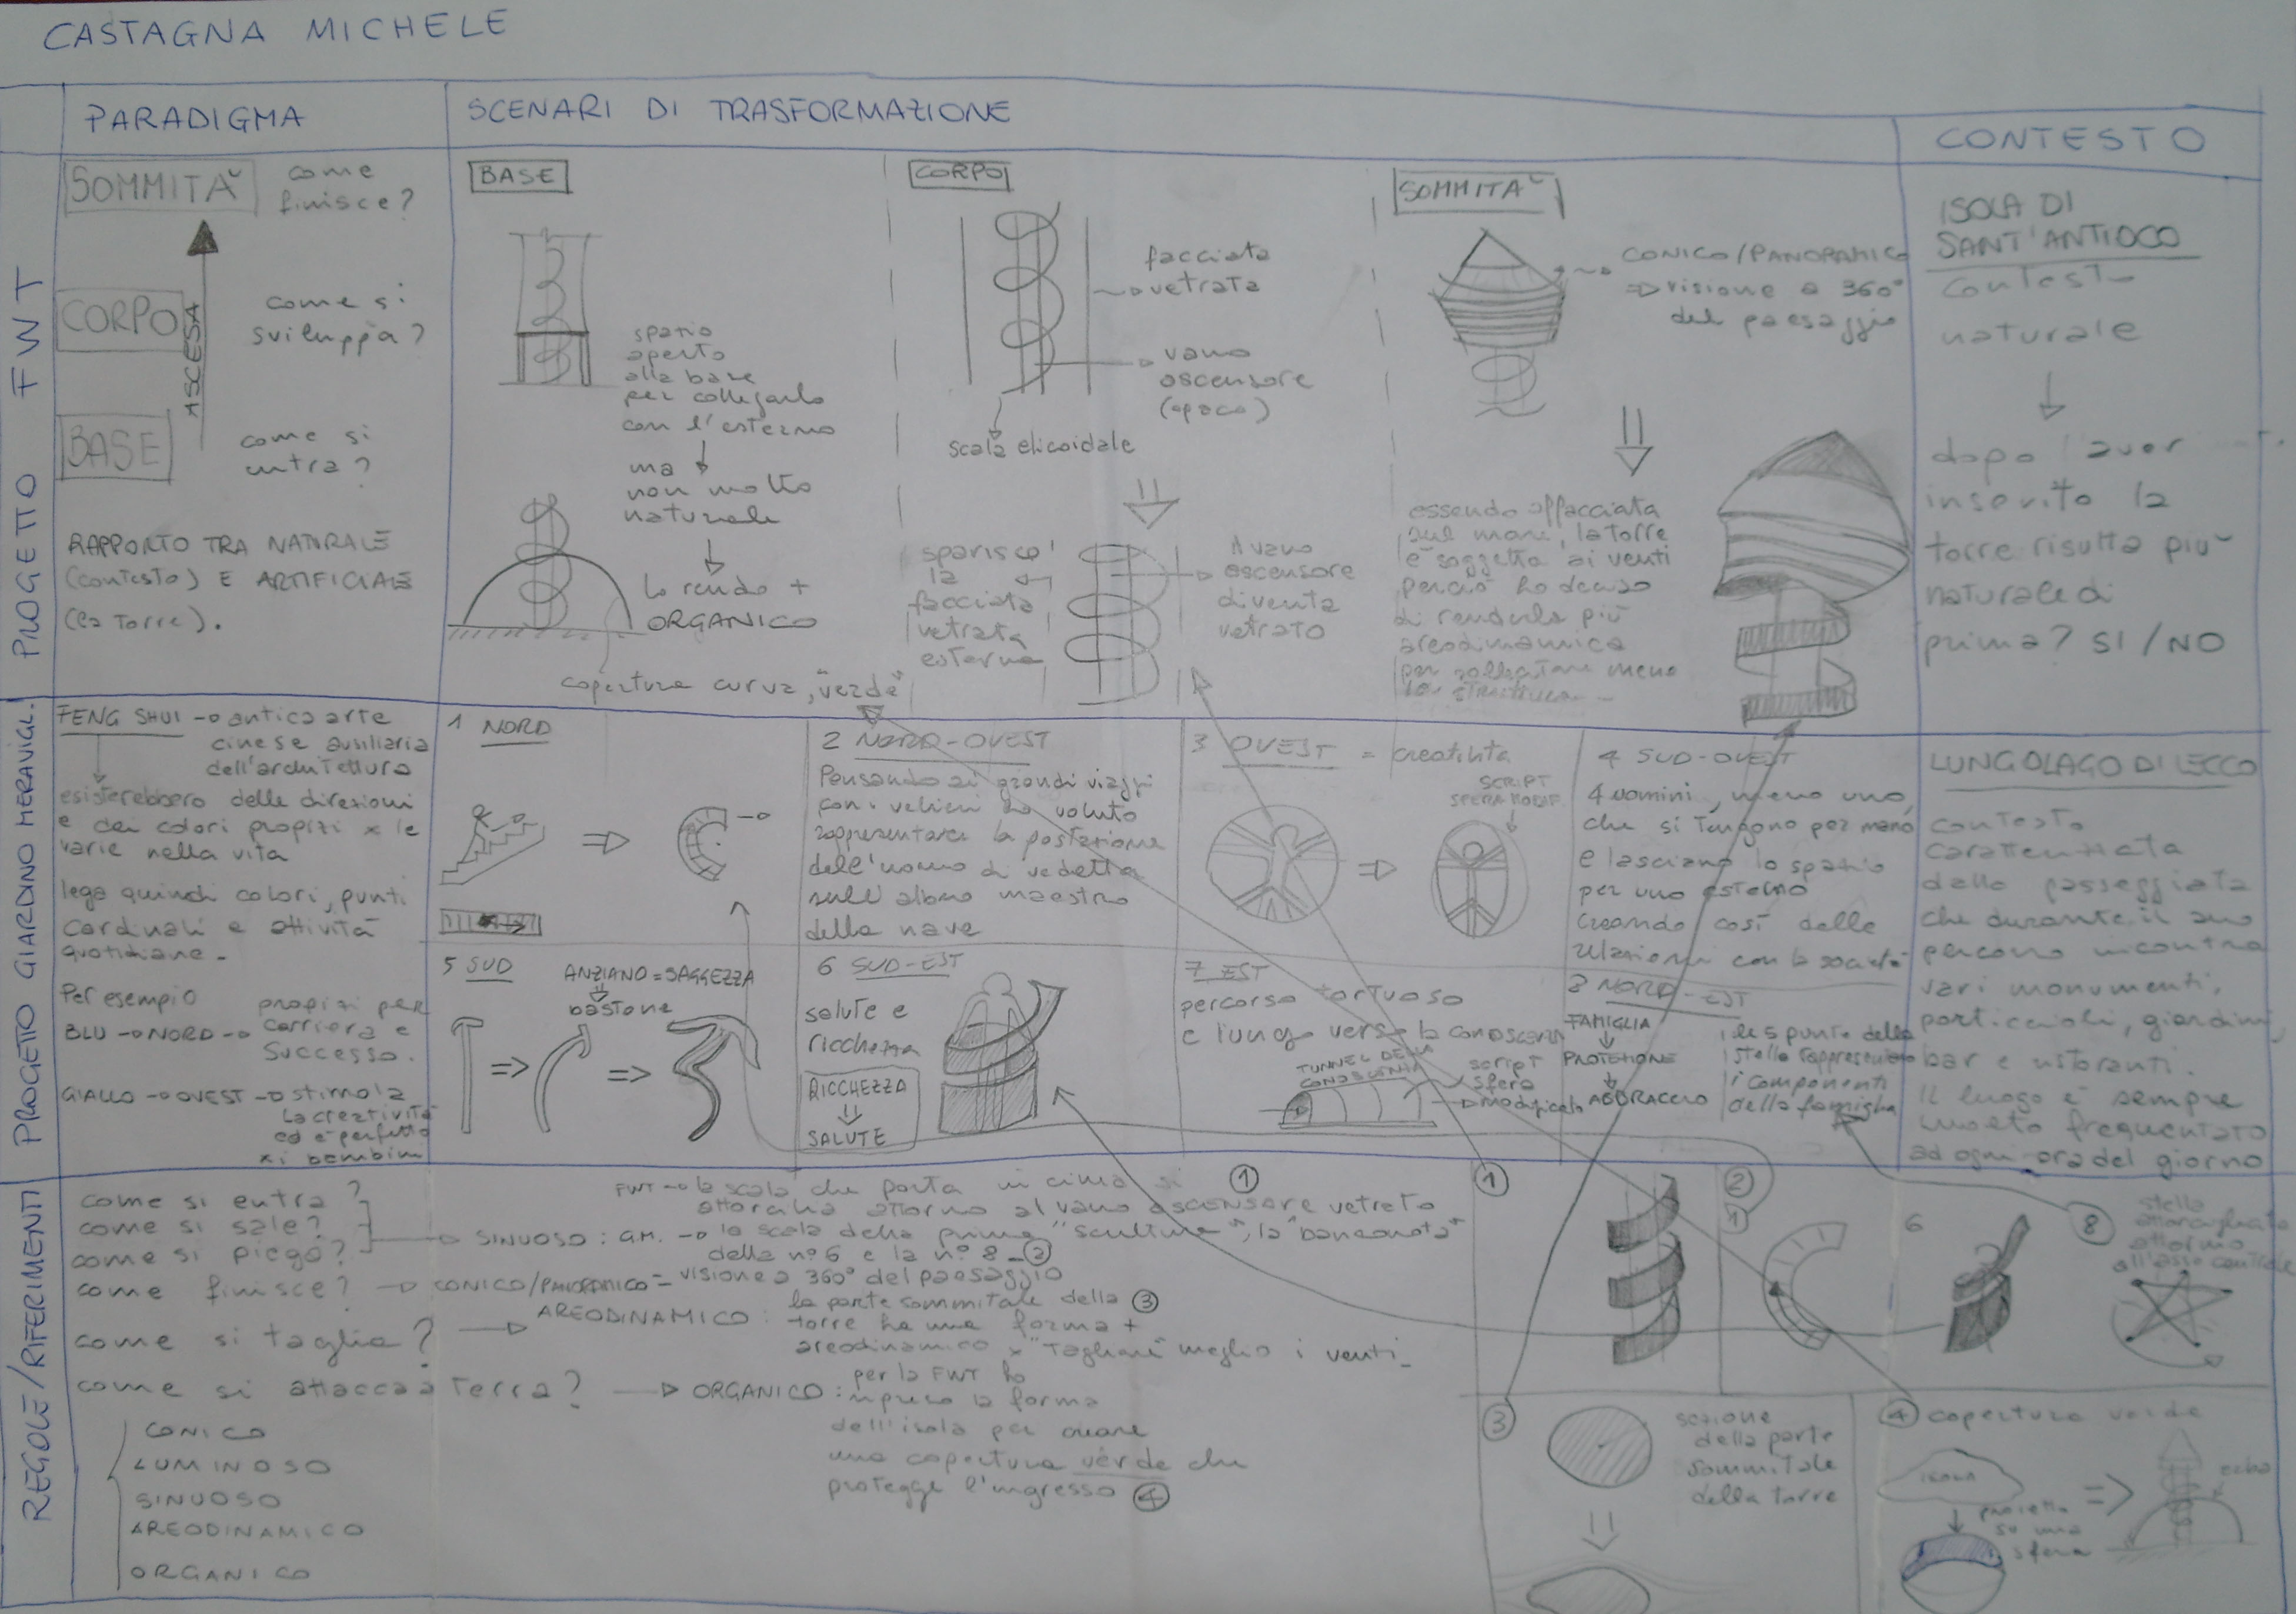 CASTAGNA MICHELE
PARADIGMA
SCENARI DI TRASFORMAZIONE
CONTESTO
PROGETTO FWT
SOMMITA'
come
finisce?
CORPO
ASCESA
come si
sviluppa?
BASE
come si
entra?
RAPPORTO TRA NATURALE
(contesto) E ARTIFICIALE
(la torre).
BASE
spazio
aperto
alla base
per collegarlo
con l'esterno
ma
non molto
naturale
lo rendo +
ORGANICO
copertura curva, "verde"
CORPO
facciata
vetrata
vano
ascensore
(opaco)
scala elicoidale
sparisce
la
facciata
vetrata
esterna
il vano
ascensore
diventa
vetrato
SOMMITA'
CONICO/PANORAMICO
=> visione a 360°
del paesaggio
essendo affacciata
sul mare, la torre
è soggetta ai venti
perciò ho deciso
di renderla più
areodinamica
per sollecitare meno
la struttura
ISOLA DI
SANT'ANTIOCO
contesto
naturale
dopo l'aver
inserito la
torre risulta più
naturale di
prima? SI/NO
PROGETTO GIARDINO MERAVIGL.
FENG SHUI -> antica arte
cinese ausiliaria
dell'architettura
esisterebbero delle direzioni
e dei colori propizi x le
varie nella vita
lega quindi colori, punti
cardinali e attività
quotidiane.
Per esempio
BLU -> NORD -> propizi per
carriera e
successo.
GIALLO -> OVEST -> stimola
la creatività
ed è perfetto
x i bambini
1 NORD
2 NORD-OVEST
Pensando ai grandi viaggi
con i velieri ho voluto
rappresentare la postazione
dell'uomo di vedetta
sull'albero maestro
della nave
3 OVEST = creatività
SCRIPT
SFERA MODIF.
4 SUD-OVEST
4 uomini, meno uno,
che si tengono per mano
e lasciano lo spazio
per uno esterno
creando così delle
relazioni con la società
5 SUD
ANZIANO = SAGGEZZA
bastone
6 SUD-EST
salute e
ricchezza
RICCHEZZA
SALUTE
7 EST
percorso tortuoso
e lungo verso la conoscenza
TUNNEL DELLA
CONOSCENZA
script
sfera
modificato
8 NORD-EST
FAMIGLIA
PROTEZIONE
ABBRACCIO
le 5 punte della
stella rappresentano
i componenti
della famiglia
LUNGOLAGO DI LECCO
contesto
caratterizzato
dalla passeggiata
che durante il suo
percorso incontra
vari monumenti,
porticcioli, giardini,
bar e ristoranti.
Il luogo è sempre
molto frequentato
ad ogni ora del giorno
REGOLE/RIFERIMENTI
come si entra?
come si sale?
come si piega?
FWT -> la scala che porta in cima si ①
attorciglia attorno al vano ascensore vetrato
SINUOSO: G.M. -> la scala della prima "scultura", la "banconota"
della n°6 e la n°8 - ②
come finisce? -> CONICO/PANORAMICO = visione a 360° del paesaggio
come si taglia? -> AREODINAMICO: la parte sommitale della ③
torre ha una forma +
areodinamica x "tagliare" meglio i venti.
come si attacca a terra? -> ORGANICO: per la FWT ho
ripreso la forma
dell'isola per creare
una copertura verde che
protegge l'ingresso ④
CONICO
LUMINOSO
SINUOSO
AREODINAMICO
ORGANICO
①
②
1
6
8
stella
attorcigliata
attorno
all'asse centrale
③
sezione
della parte
sommitale
della torre
④ copertura verde
ISOLA
proietto
su una
sfera
erba